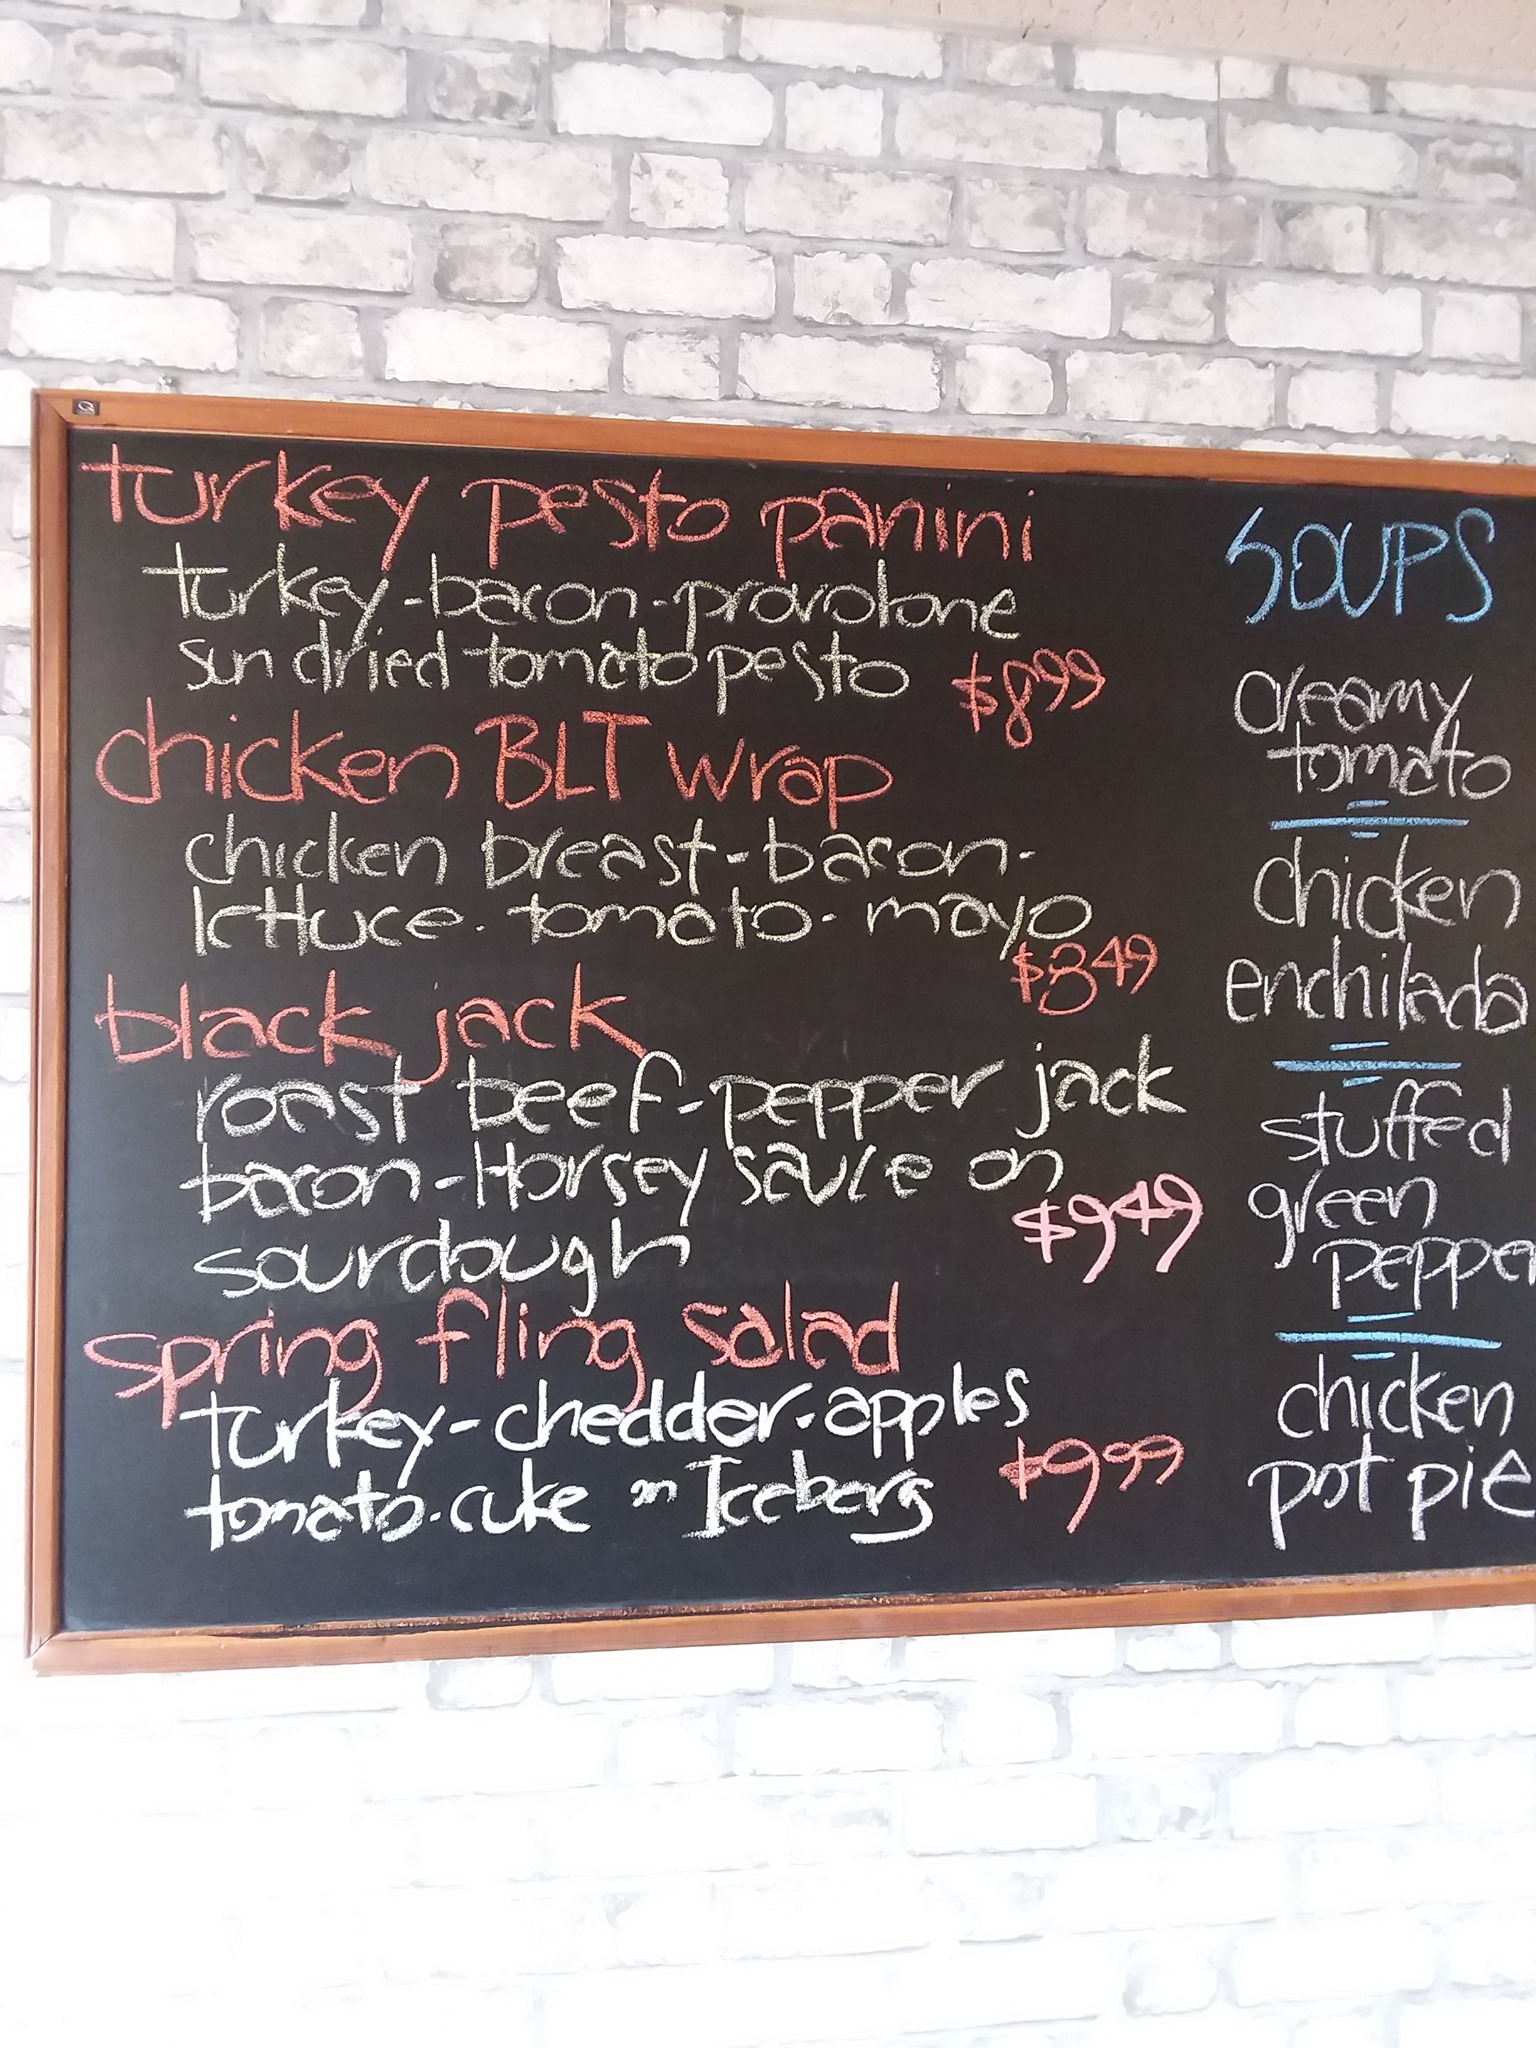 turkey pesto panini
turkey-bacon-provolone
sun dried tomato pesto $8.99
chicken BLT wrap
chicken breast-bacon-
lettuce-tomato-mayo
$8.49
black jack
roast beef-pepper jack
bacon-Horsey sauce on
sourdough $9.49
spring fling salad
turkey-chedder-apples
tomato-cuke on Iceberg $9.99
SOUPS
creamy
tomato
chicken
enchilada
stuffed
green
pepper
chicken
pot pie